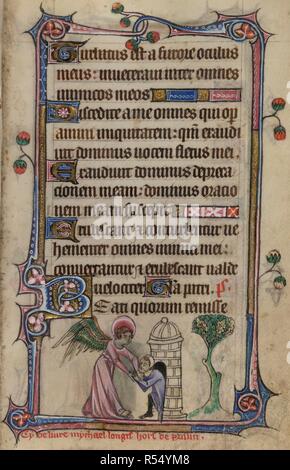 Turbatus est a furore oculus
meus: inueteraui inter omnes
inimicos meos
Discedite a me omnes qui op
amini iniquitatem: qm̄ exaudi
uit dominus uocem fletus mei.
Exaudiuit dominus depreca
cionem meam: dominus oracio
nem meam suscepit
Erubescant et conturbentur ue
hementer omnes inimici mei:
conuertantur et erubescant ualde
uelociter Gl̄a patri. p̄s
Beati quorum remisse
Cy deliure mychael longis hors de prisun.
alamy
Image ID: P54YM8
www.alamy.com